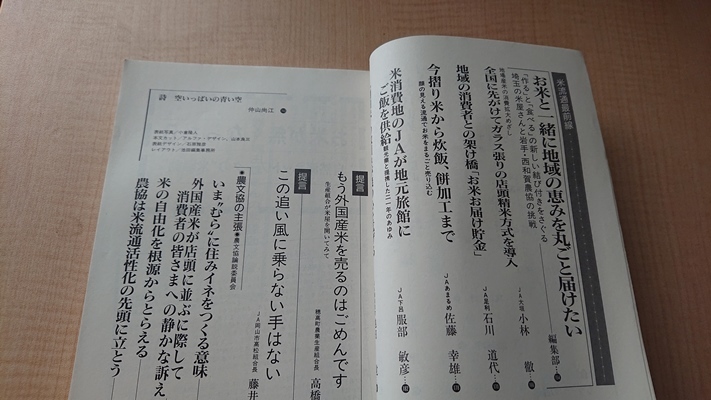 米流通最前線
お米と一緒に地域の恵みを丸ごと届けたい
「作る」と「食べる」の新しい結び付きをさぐる
埼玉の米屋さんと岩手・西和賀農協の挑戦
編集部…
全国に先がけてガラス張りの店頭精米方式を導入
小林 徹…
地域の消費者との架け橋「お米お届け貯金」
JA足利 石川 道代…
今摺り米から炊飯、餅加工まで
顔の見える流通でお米をまるごと売り込む
JAあまるめ 佐藤 幸雄…
米消費地のJAが地元旅館に
ご飯を供給
観光業と提携した二一年のあゆみ
JA下呂 服部 敏彦…
提言
もう外国産米を売るのはごめんです
生産組合が米屋を開いてみて
穂高町農業生産組合長 高橋
提言
この追い風に乗らない手はない
JA岡山市高松組合長 藤井
●農文協の主張●農文協論説委員会
いま“むら”に住みイネをつくる意味
外国産米が店頭に並ぶに際して
消費者の皆さまへの静かな訴え
米の自由化を根源からとらえる
農協は米流通活性化の先頭に立とう
詩 空いっぱいの青い空
仲山尚江